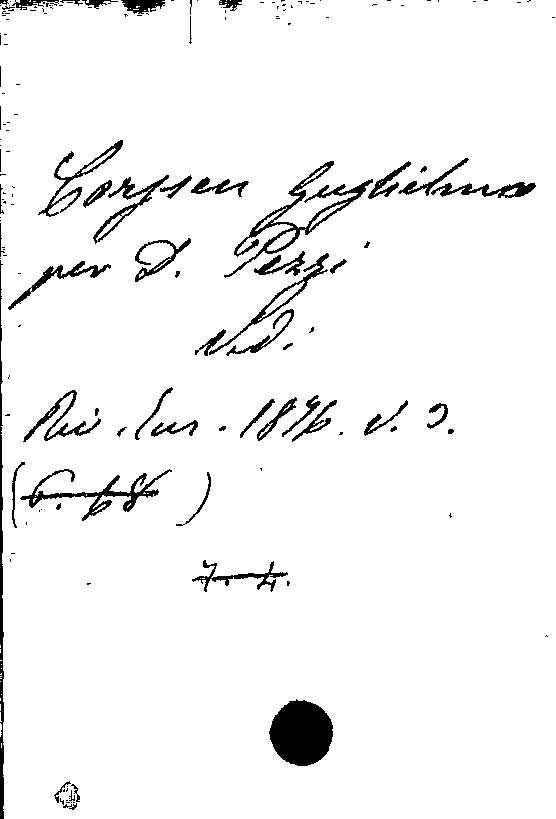 Corssen Guglielmo
per D. Pezzi
v. di:
Riv. Eur. 1876. v. 3.
(6. 68)
7. 4.